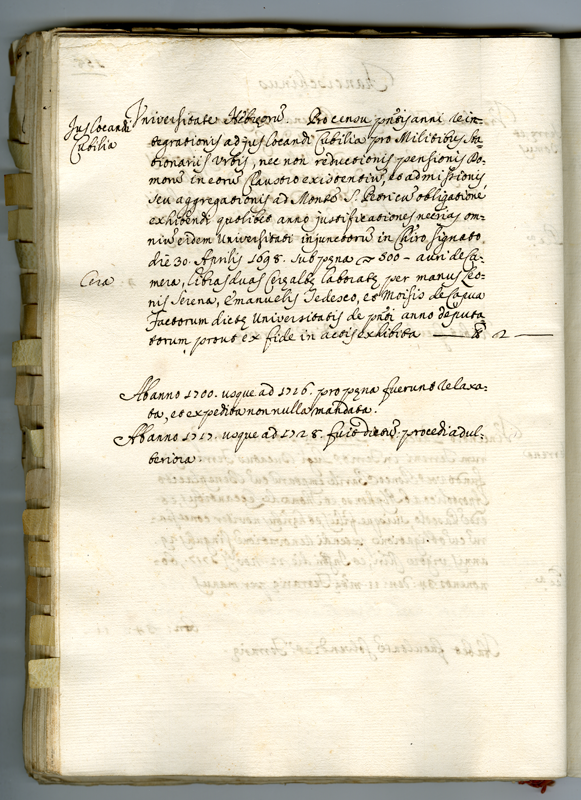 Jus locandi
Cubilia
Universitate Hebreorũ. Pro censu pñtis anni rein-
tegrationis ad jus locandi Cubilia pro Militibus Sta-
tionariis Urbis, nec non reductionis pensionis Do-
morũ in eorũ Claustro existentiũ, et admissionis
seu aggregationis ad Montẽ S. Petri cũ obligatione
exhibendi quolibet anno justificationes necrias om-
niũ eidem Universitati injunctorũ in Chiro signato
die 30. Aprilis 1698. sub pęna 500 - auri de Ca-
Cera
mera, libras duas Cerę albę laboratę per manus Leo-
nis Serena, Emanuelis Tedesco, et Moisis de Capua
Factorum dictę Universitatis de pñti anno deputa-
torum prout ex fide in actis exhibita — lb 2 —
Ab anno 1700. usque ad 1716. pro pęna fuerunt relaxa-
ta, et expedita non nulla mandata.
Ab anno 1717. usque ad 1728. fuit procedi ad ul-
teriora.